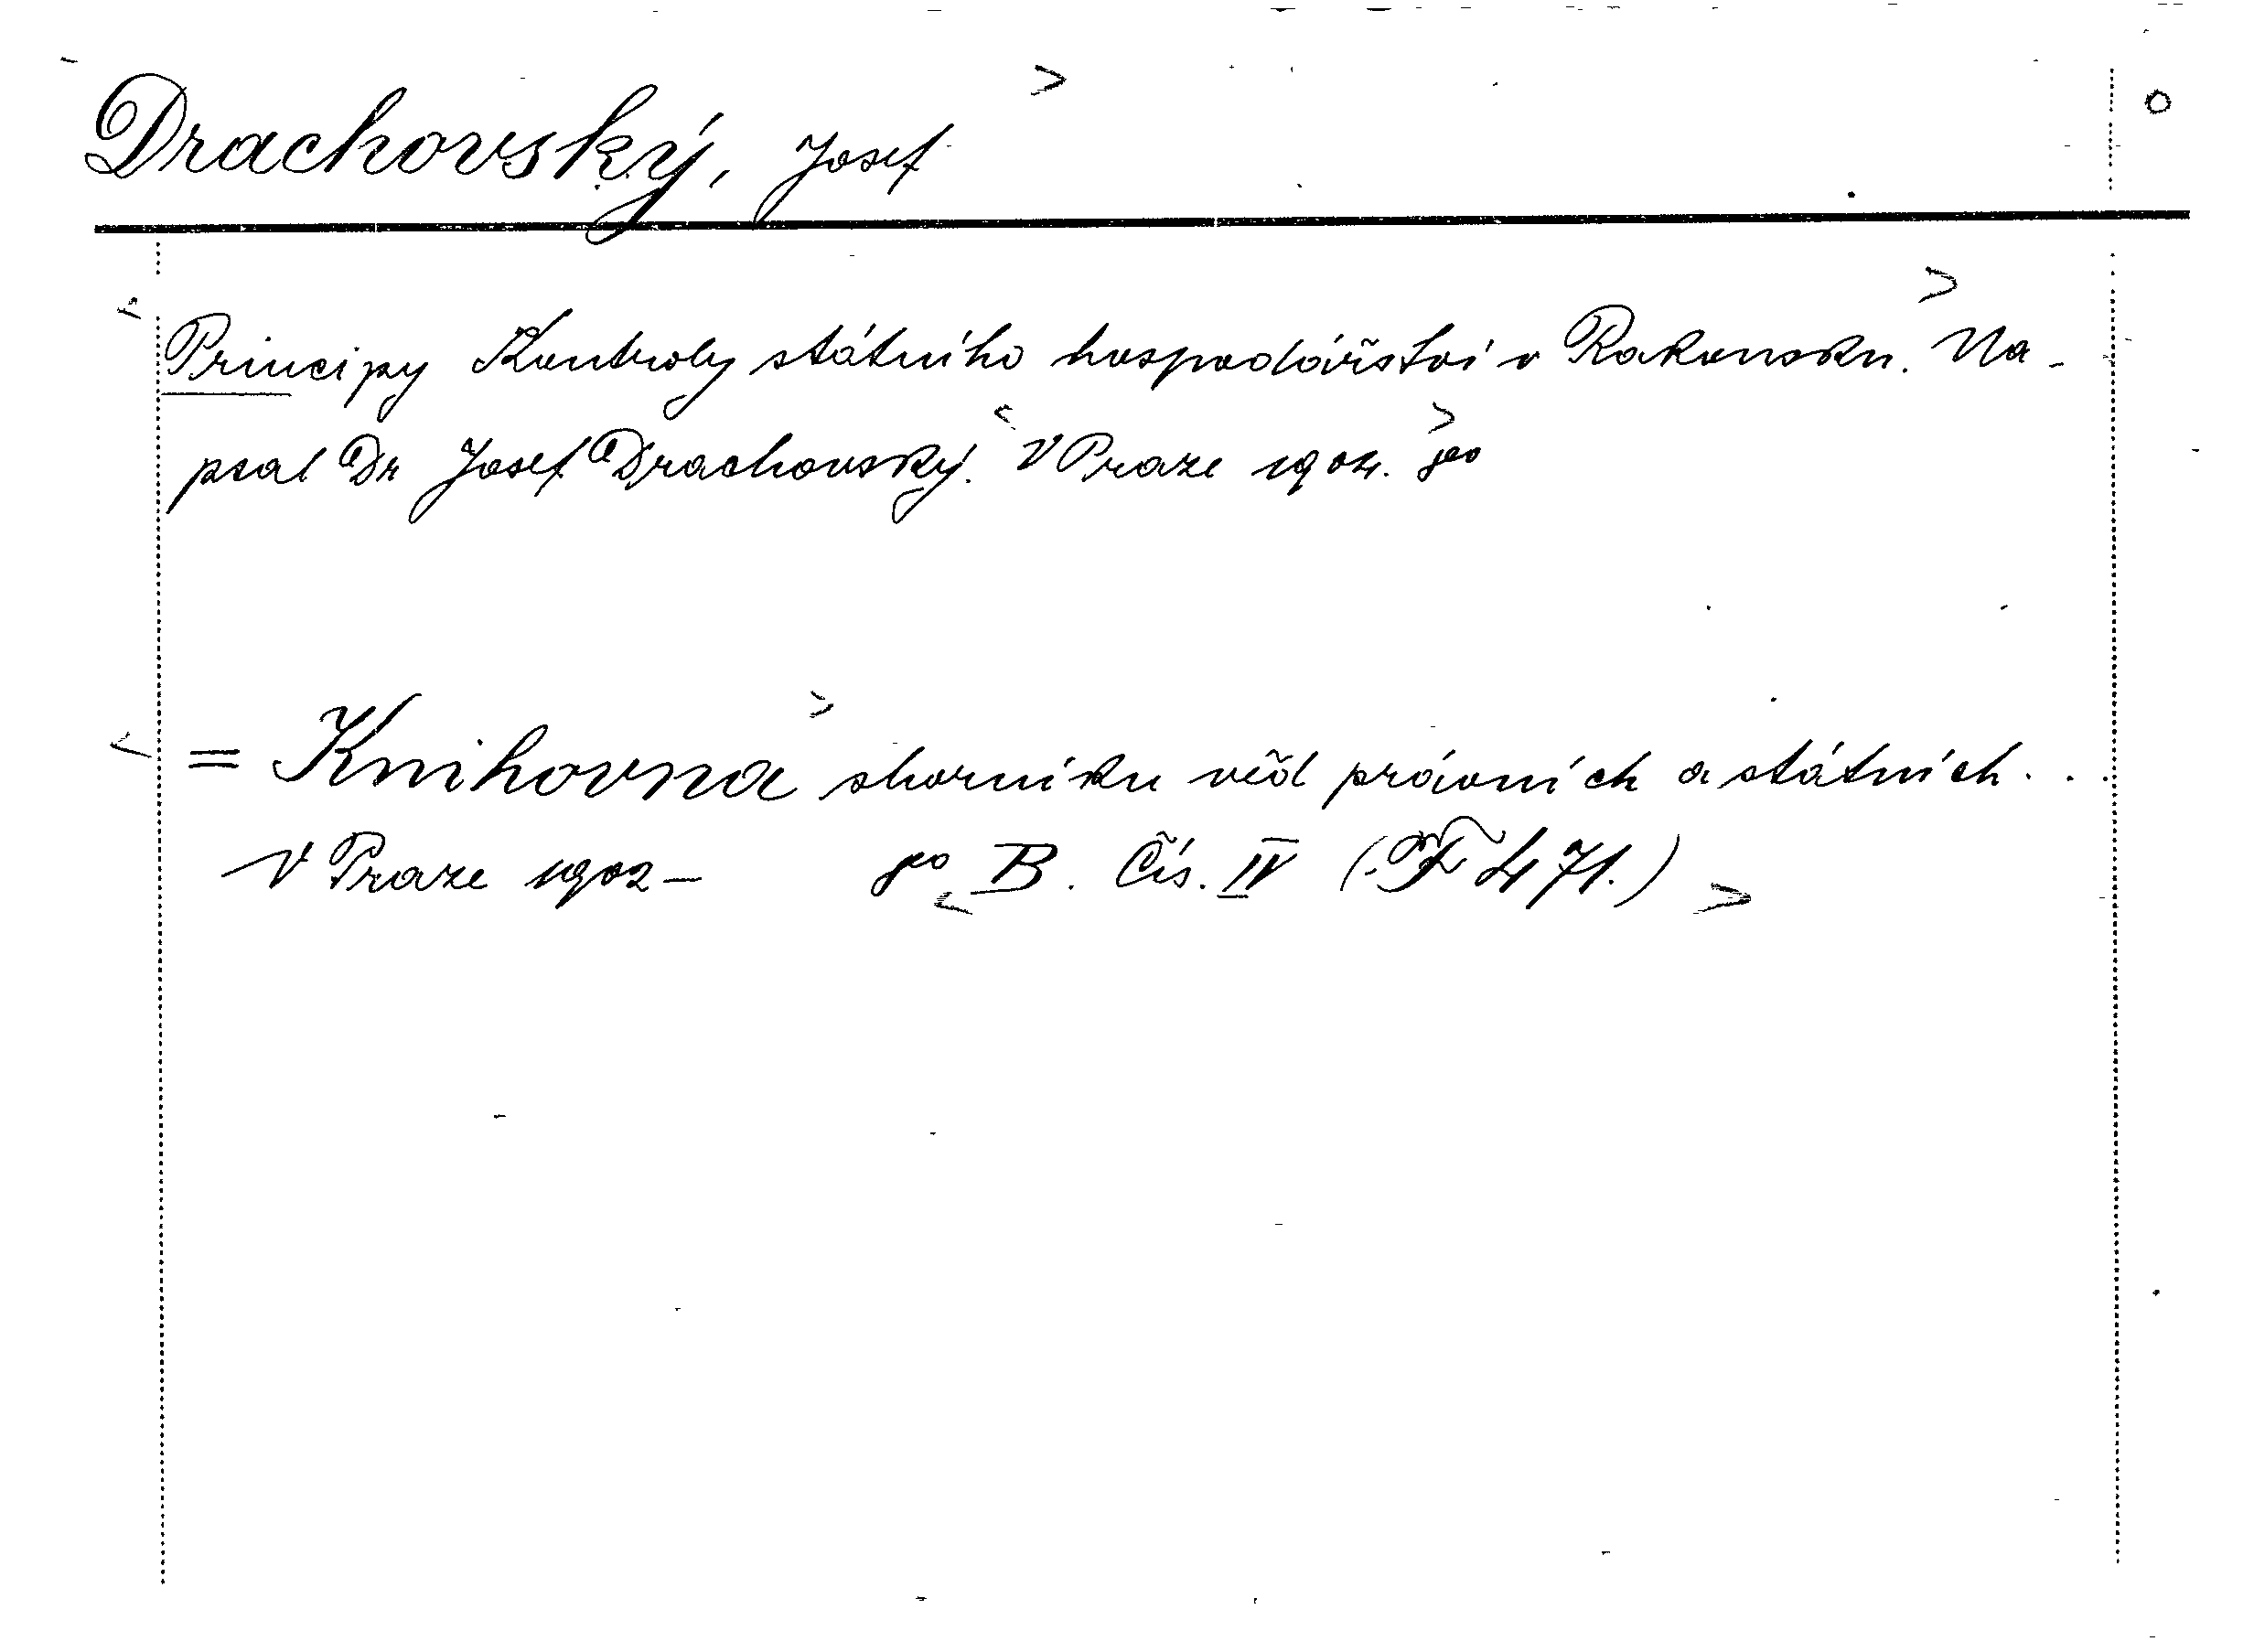 Drachovský, Josef
Principy Kontroly státního hospodářství v Rakousku. Na-
psal Dr Josef Drachovský. V Praze 1904. 8º
= Knihovna sborníku věd právních a státních. . .
V Praze 1902— 8º B. Čís. IV (F 471.)